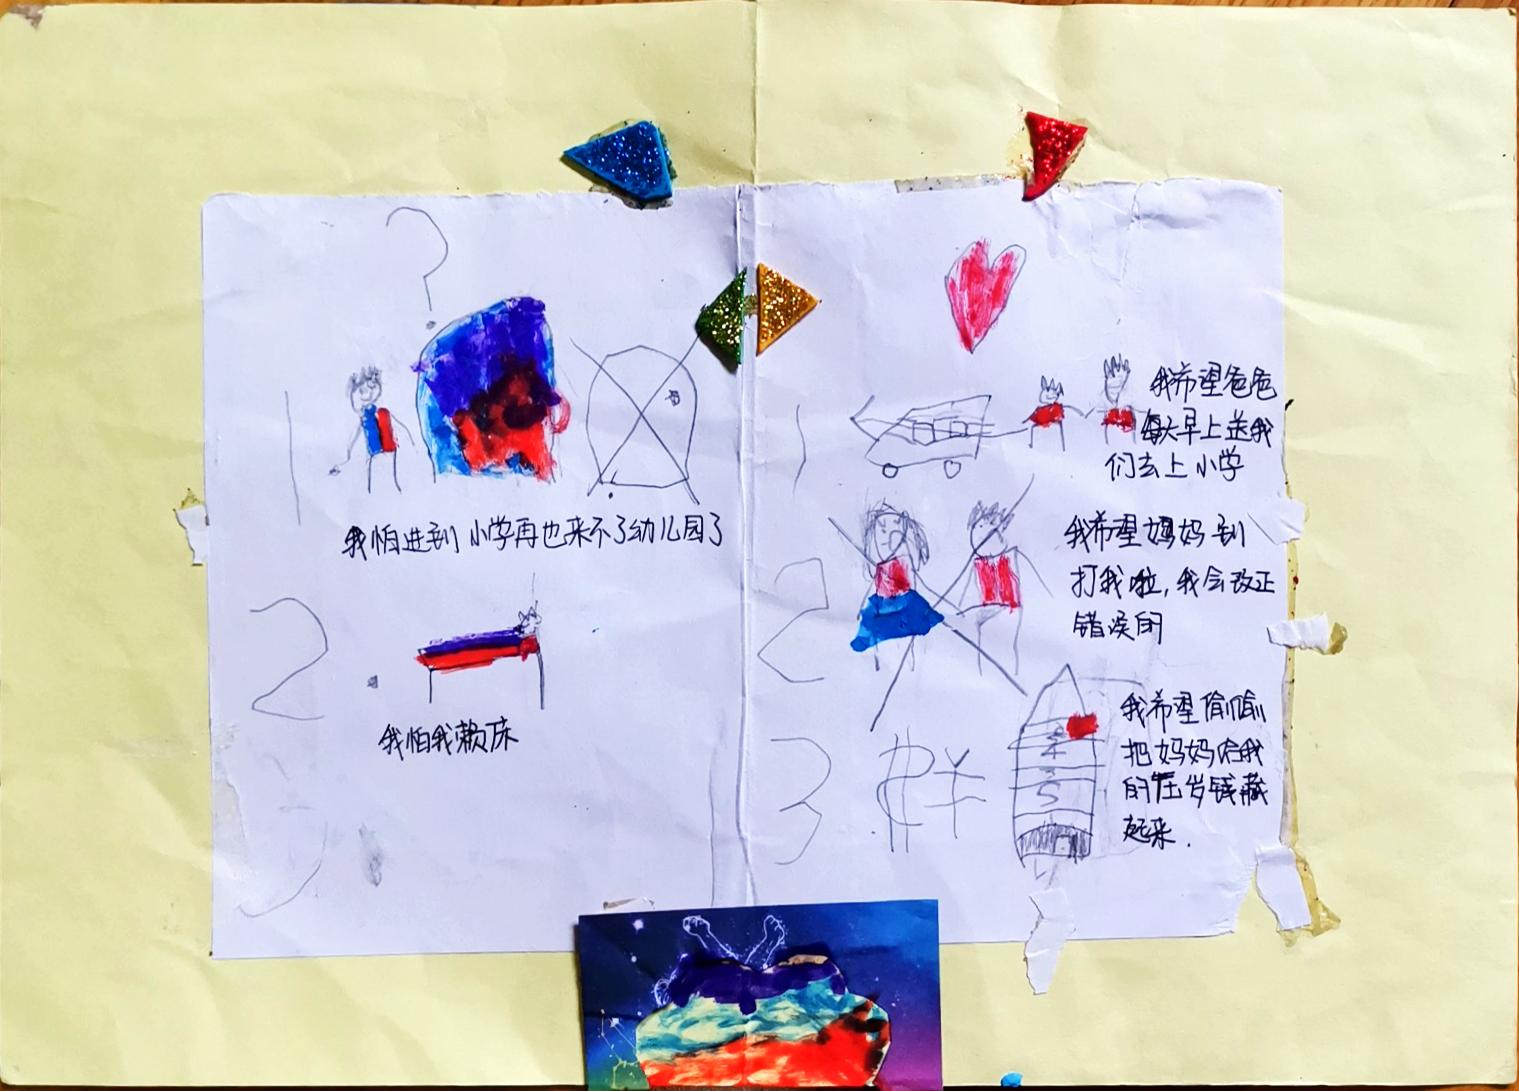 ?
1
我怕进到小学再也来不了幼儿园了
2.
我怕我赖床
3
1
我希望爸爸
每天早上送我
们去上小学
2
我希望妈妈别
打我啦,我会改正
错误的
3
我希望偷偷
把妈妈给我
的压岁钱藏
起来.